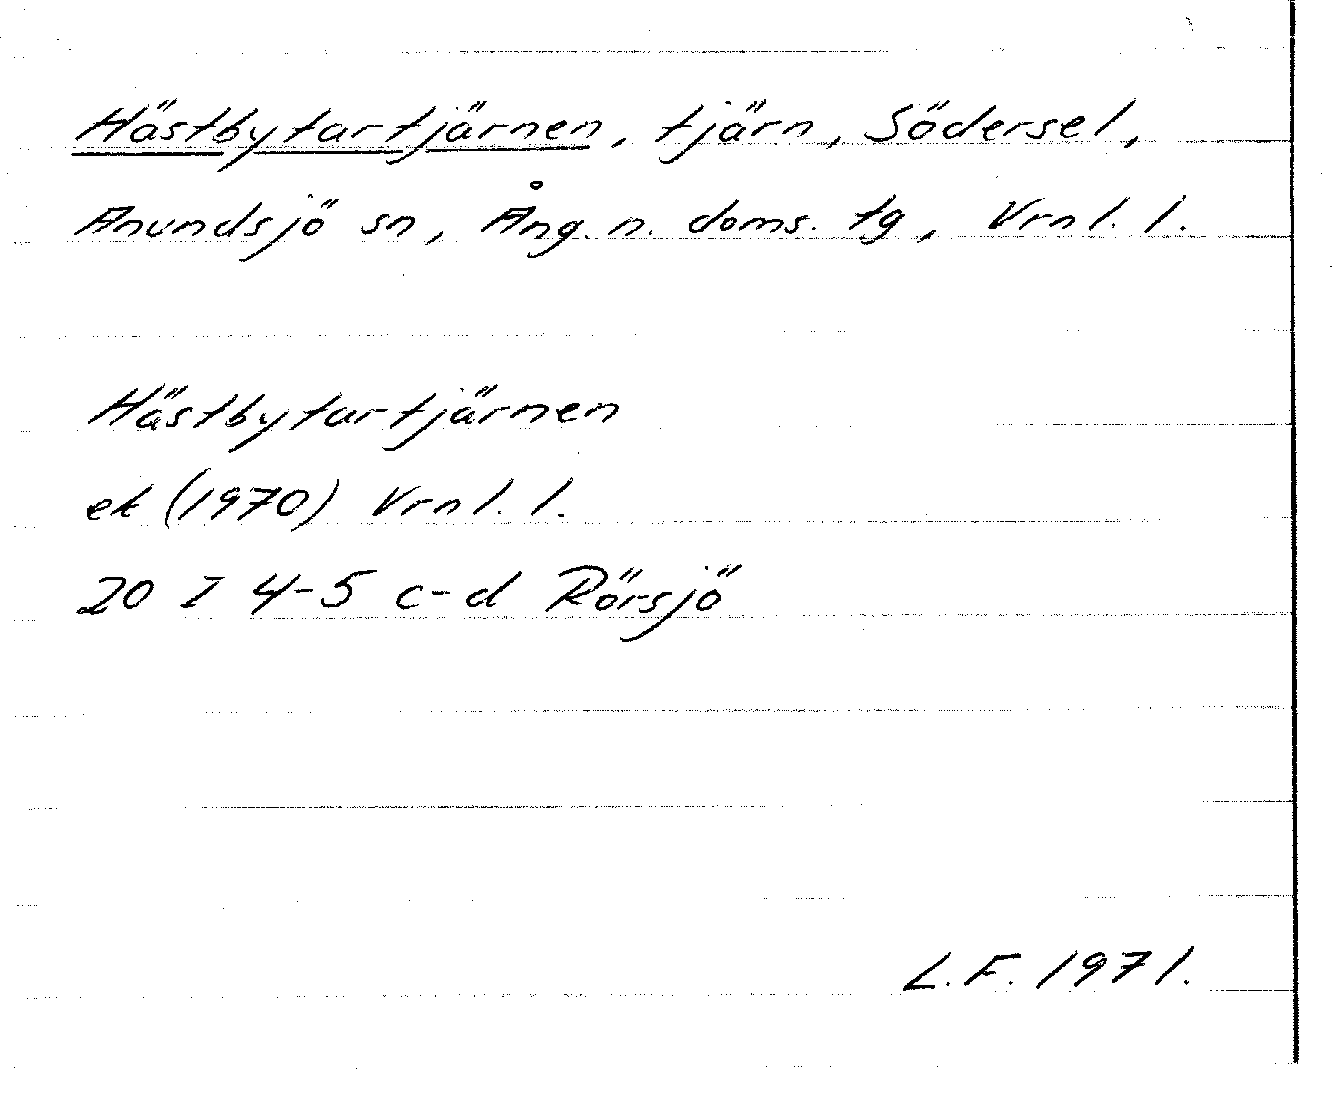 Hästbytartjärnen, tjärn, Södersel,
Anundsjö sn, Ång. n. doms. tg, Vrnl. l.
Hästbytartjärnen
ek (1970) Vrnl. l.
20 I 4-5 c-d Rörsjö
L.F. 1971.